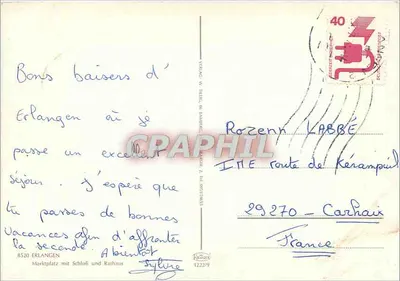 Bons baisers d'
Erlangen où je
passe un excellent
séjour. J'espère que
tu passes de bonnes
vacances afin d'affronter
la seconde. A bientôt
Sylvie
8520 ERLANGEN
Marktplatz mit Schloß und Rathaus
40
Rozenn LABBÉ
IME route de Kérampuil
29270 - Carhaix
France
CPAPHIL